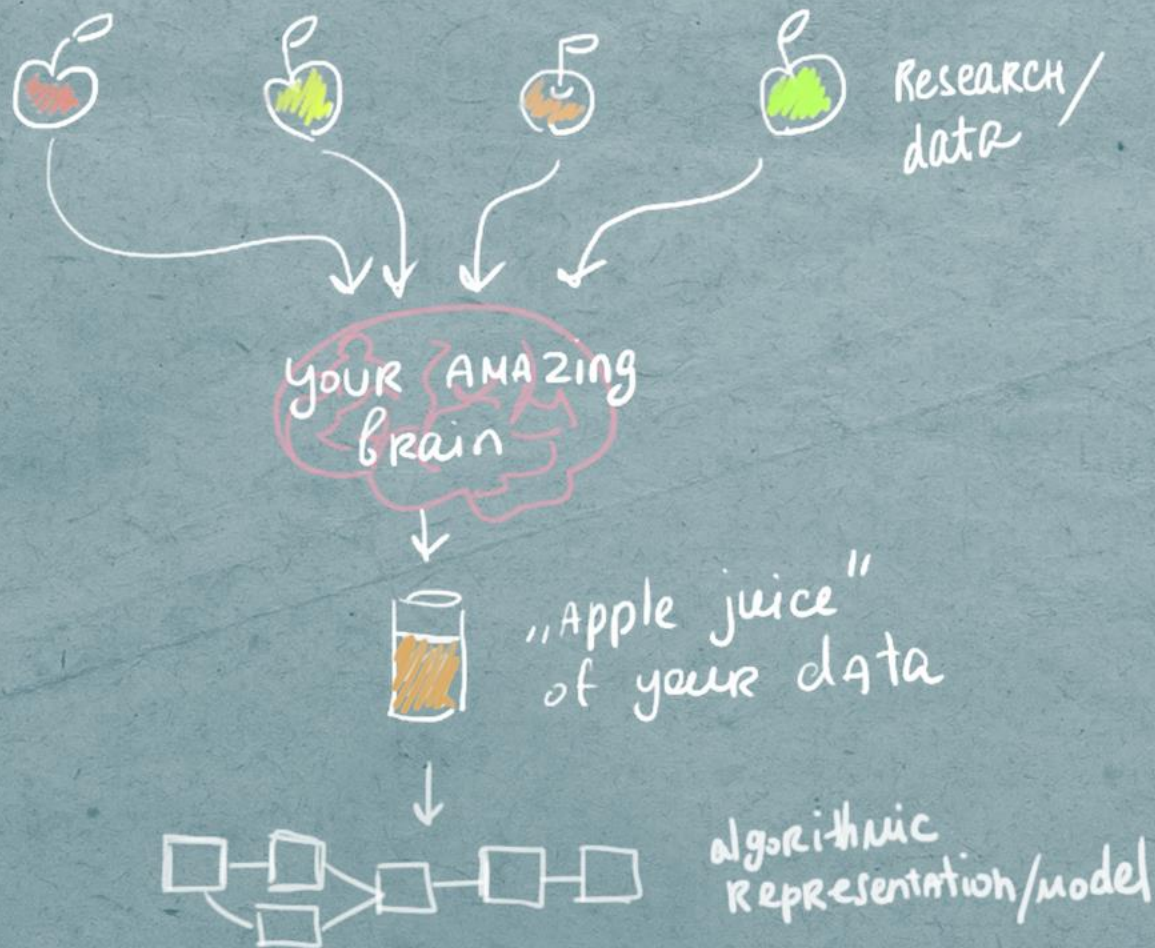 Research/
data
your amazing
brain
„Apple juice"
of your data
algorithmic
Representation/model